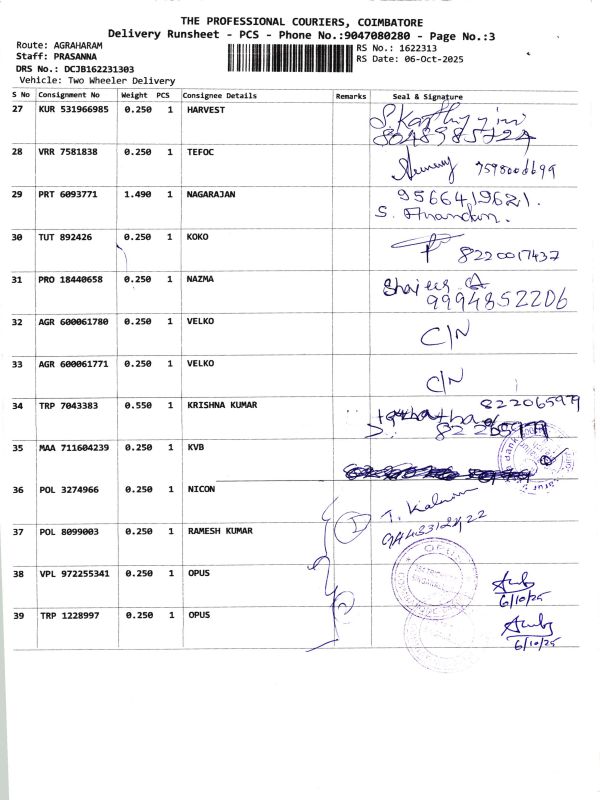 THE PROFESSIONAL COURIERS, COIMBATORE
Delivery Runsheet - PCS - Phone No.:9047080280 - Page No.:3
Route: AGRAHARAM
RS No.: 1622313
Staff: PRASANNA
RS Date: 06-Oct-2025
DRS No.: DCJB162231303
Vehicle: Two Wheeler Delivery
S No Consignment No Weight PCS Consignee Details Remarks Seal & Signature
27 KUR 531966985 0.250 1 HARVEST
28 VRR 7581838 0.250 1 TEFOC
29 PRT 6093771 1.490 1 NAGARAJAN 9566419621.
S. Anandan.
30 TUT 892426 0.250 1 KOKO 8220017437
31 PRO 18440658 0.250 1 NAZMA
9994852206
32 AGR 600061780 0.250 1 VELKO C/N
33 AGR 600061771 0.250 1 VELKO C/N
34 TRP 7043383 0.550 1 KRISHNA KUMAR 822065979
35 MAA 711604239 0.250 1 KVB
36 POL 3274966 0.250 1 NICON
37 POL 8099003 0.250 1 RAMESH KUMAR
OPUS
38 VPL 972255341 0.250 1 OPUS
6/10/25
39 TRP 1228997 0.250 1 OPUS
6/10/25